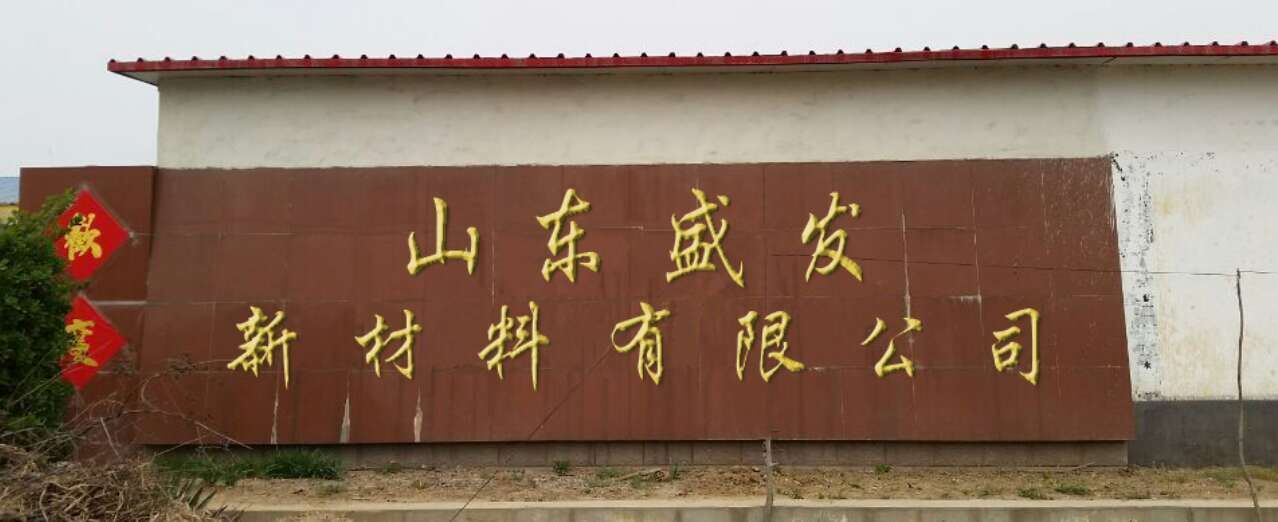 山东盛发
新材料有限公司
歡